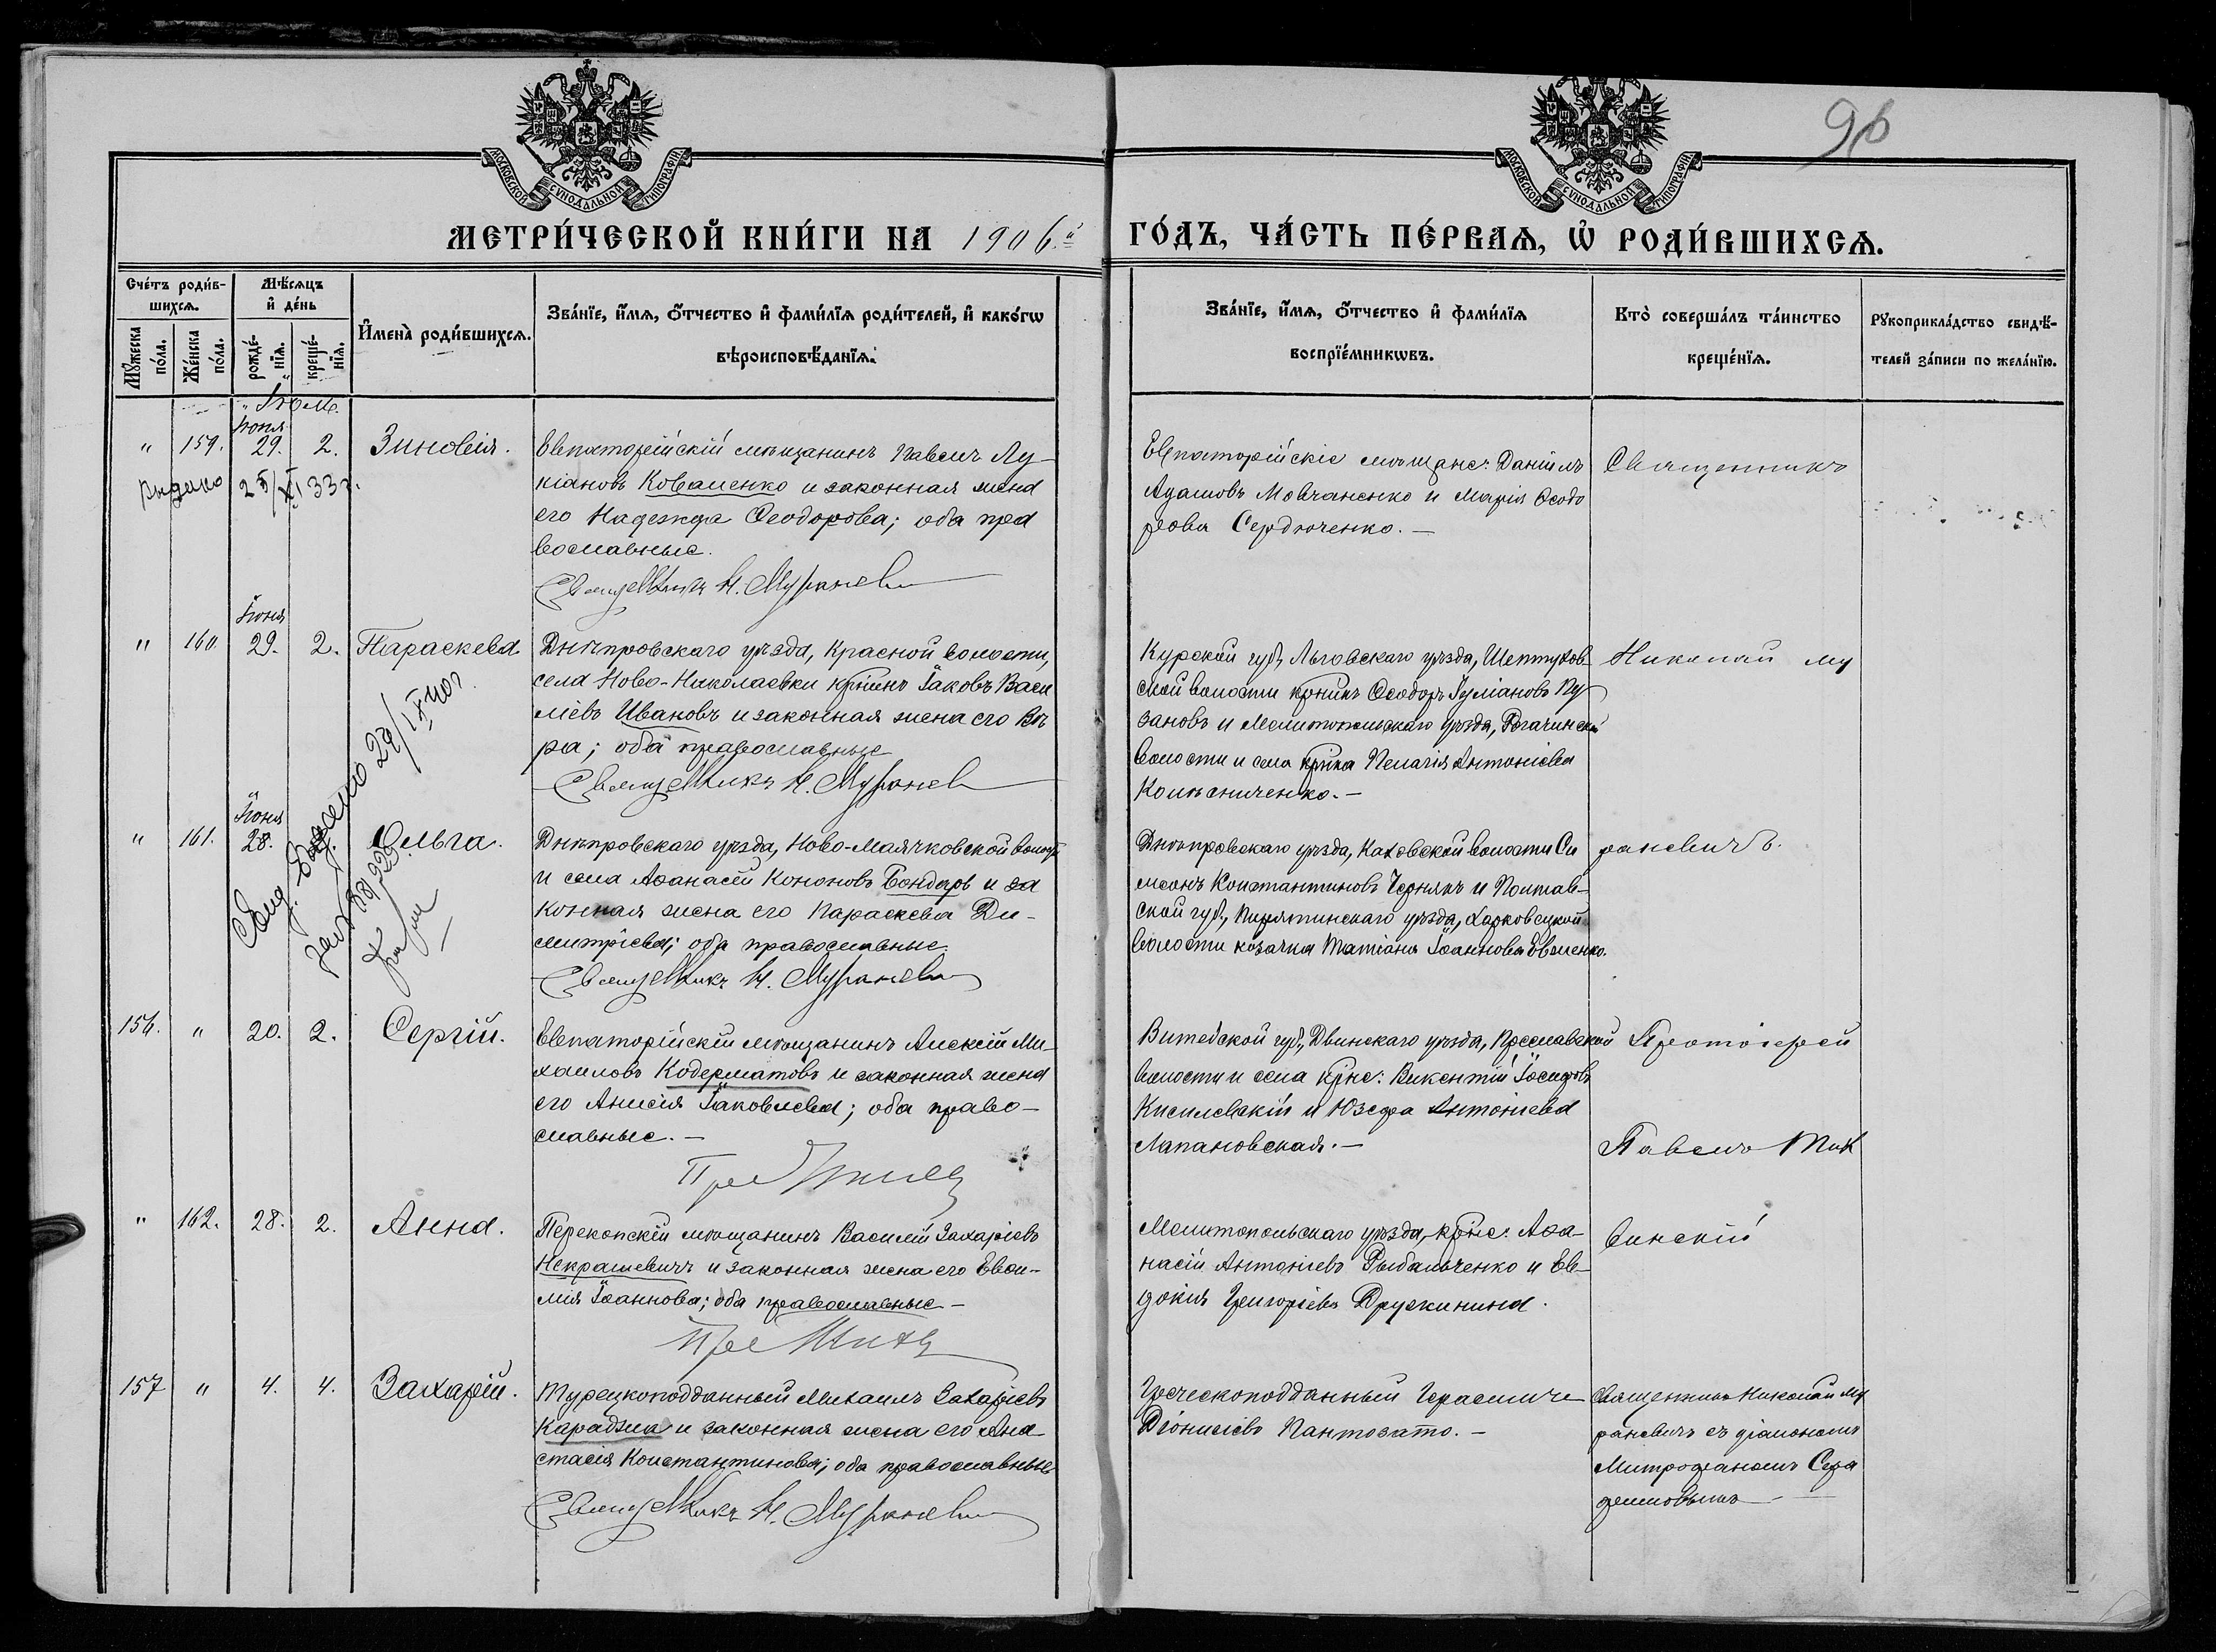 96
МОСКОВСКОЙ СѴНОДАЛЬНОЙ ТИПОГРАФІИ
МОСКОВСКОЙ СѴНОДАЛЬНОЙ ТИПОГРАФІИ
МЕТРИ́ЧЕСКОЙ КНИ́ГИ НА 1906.й ГО́ДЪ, ЧА́СТЬ ПЕ́РВАѦ, Ѡ҆ РОДИ́ВШИХСѦ.
Сче́тъ роди́в-
шихсѧ.
Мꙋ́жеска по́ла.
Же́нска по́ла.
Мѣ́сяцъ
и҆ де́нь
рожде́-нїѧ.
креще́-нїѧ.
И҆мена̀ роди́вшихсѧ.
Зва́нїе, и҆́мѧ, ѻ҆́тчество и҆ фами́лїѧ роди́телей, и҆ како́гѡ
вѣроисповѣ́данїѧ.
Зва́нїе, и҆́мѧ, ѻ҆́тчество и҆ фами́лїѧ
воспрїе́мникѡвъ.
Кто̀ соверша́лъ та́инство
креще́нїѧ.
Рꙋкоприкла́дство свидѣ́-
телей за́писи по жела́нїю.
Іюль.
Іюня
" 159. 29. 2. Зиновія.
Евпаторійскій мѣщанинъ Павелъ Лу-
кіановъ Коваленко и законная жена
его Надежда Ѳеодорова; оба пра
вославные.
Священникъ Н. Мураневи
Евпаторійскіе мѣщане: Даніилъ
Адамовъ Мовчаненко и Марія Ѳеодо
рова Сердюченко. —
Священникъ
Выдано 25/XI 33 г.
Іюня
" 160. 29. 2. Параскева
Днѣпровскаго уѣзда, Красной волости,
села Ново-Николаевки кр͠инъ Іаковъ Васи
ліевъ Ивановъ и законная жена его Вѣ
ра; оба православные
Священникъ Н. Муранев
Курской губ., Льговскаго уѣзда, Шептухов-
ской волости кр͠нинъ Ѳеодоръ Іуліановъ Пу-
зановъ и Мелитопольскаго уѣзда, Рогачинской
волости и села кр͠нка Пелагія Антоніева
Колѣсниченко. —
Николай Му
Іюня
" 161. 28. 2. Ольга.
Днѣпровскаго уѣзда, Ново-Маячковской волости
и села Аѳанасій Кононовъ Бондарь и за
конная жена его Параскева Ди-
митріева; оба православные.
Священникъ Н. Мураневи
Днѣпровскаго уѣзда, Каховской волости Си
меонъ Константиновъ Чернякъ и Полтав-
ской губ., Пирятинскаго уѣзда, Харковецкой
волости козачка Татіана Іоаннова Евменко.
раневичъ.
156. " 20. 2. Сергій.
Евпаторійскій мѣщанинъ Алексій Ми-
хаиловъ Кодерматовъ и законная жена
его Анисія Іаковлева; оба право-
славные. —
Витебской губ., Двинскаго уѣзда, Прессмавской
волости и села кр͠не: Викентій Іосифовъ
Кисилевскій и Юзефа Антоніева
Лапановская. —
Протоіерей
Павелъ Тих
" 162. 28. 2. Анна.
Перекопскій мѣщанинъ Василій Захаріевъ
Некрашевичъ и законная жена его Евѳи-
мія Іоаннова; оба православные —
Мелитопольскаго уѣзда, кр͠не: Аѳа-
насій Антоніевъ Рыбальченко и Ев-
докія Григоріева Дружинина.
винскій
157 " 4. 4. Захарій.
Турецкоподданный Михаилъ Захаріевъ
Караджа и законная жена его Ана
стасія Константинова; оба православные
Священникъ Н. Мураневи
Греческоподданный Герасимъ
Діонисіевъ Пантозато. —
Священникъ Николай Му
раневичъ съ діакономъ
Митрофаномъ Сера
димовымъ —